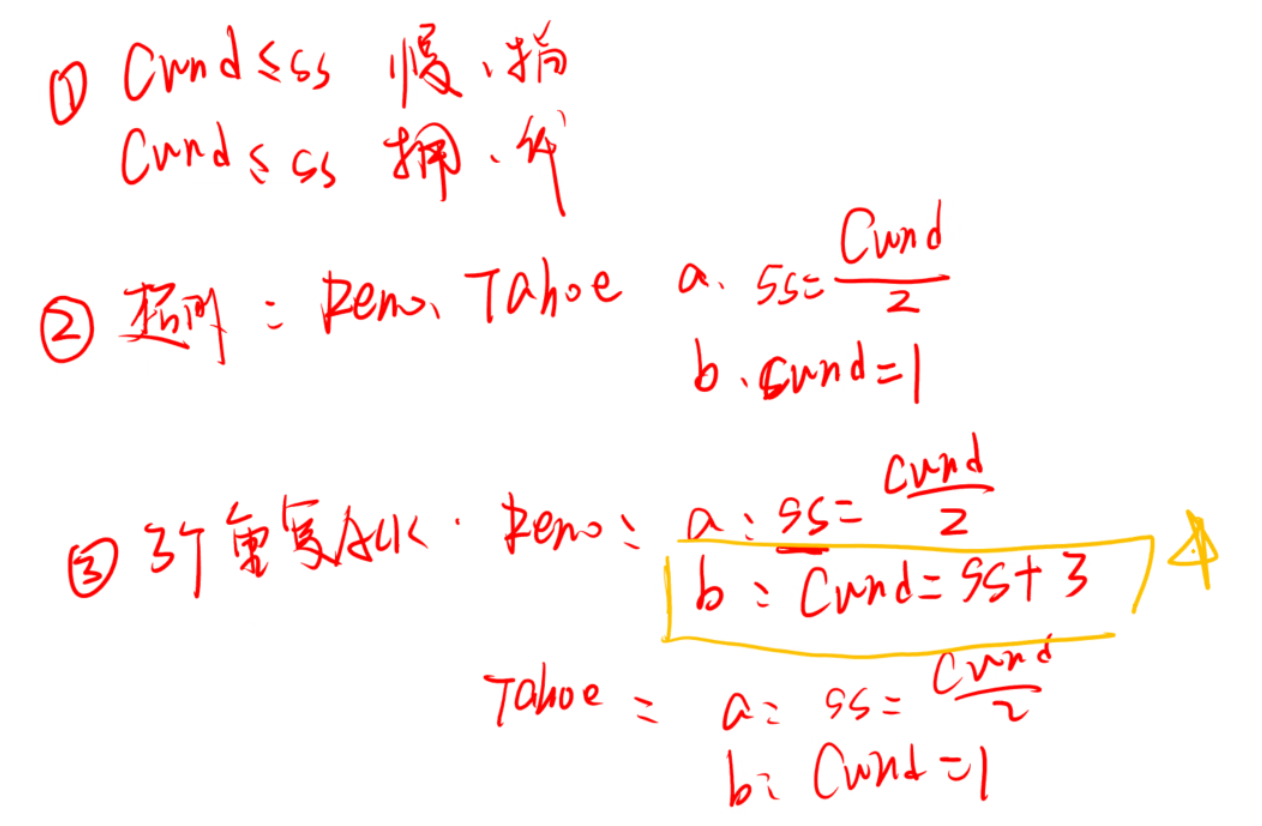 ① Cwnd ≤ ss 慢、指
Cwnd ≤ ss 拥、线
② 超时: Reno、Tahoe a. ss = Cwnd/2
b. cwnd = 1
③ 3个重复ACK. Reno: a: ss = cwnd/2
b: Cwnd = ss + 3
Tahoe: a: ss = Cwnd/2
b: Cwnd = 1